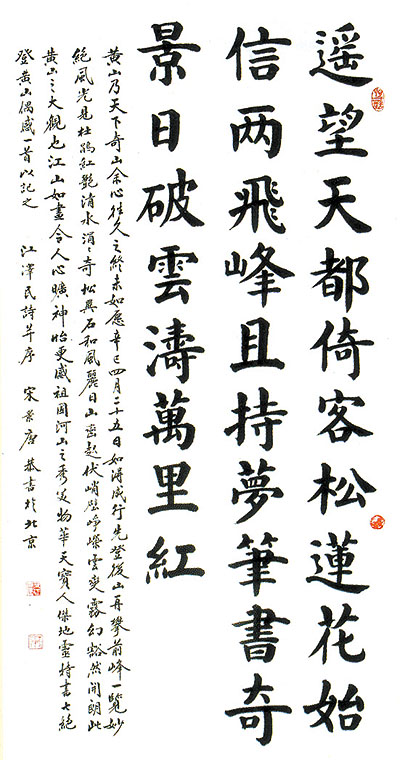 遥望天都倚客松蓮花始
信两飛峰且持夢筆書奇
景日破雲濤萬里紅
黄山乃天下奇山余心往久之終未如愿辛巳四月二十五日如得成行先登後山再攀前峰一覧妙
絶風光見杜鵑紅艷清水涓〻奇松異石和風麗日山巒起伏峭壁崢嶸雲变霧幻豁然開朗此
黄山之大觀也江山如畫令人心曠神怡更感祖國河山之秀美物華天寳人傑地靈特書七絶
登黄山偶感一首以記之　江澤民詩并序　宋景唐恭書於北京